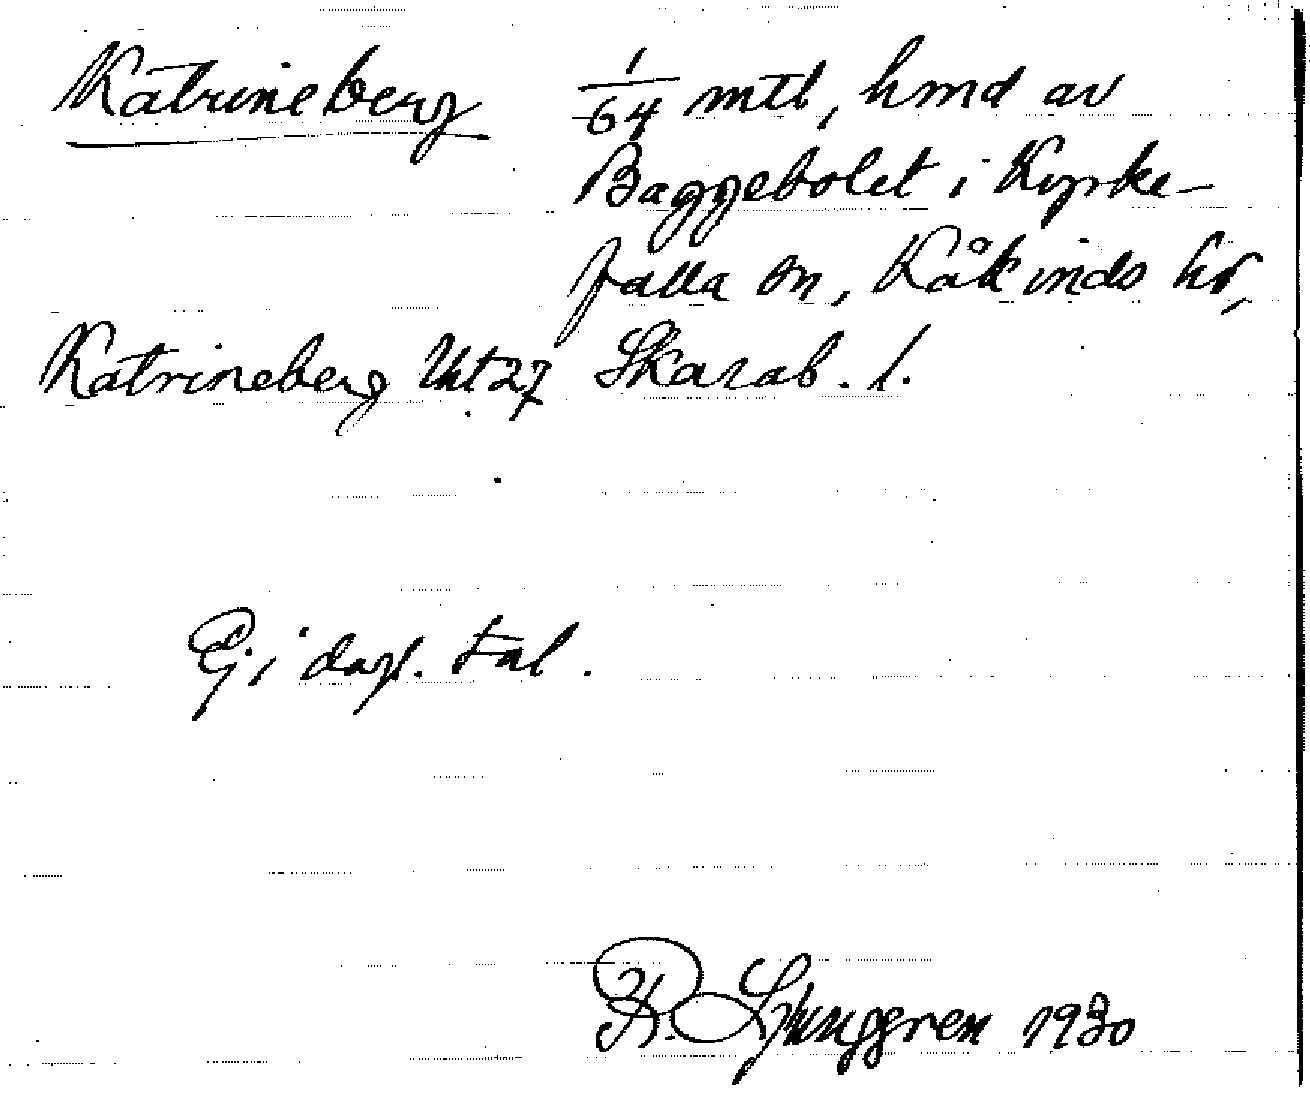 Katrineberg 1/64 mtl, hmd av
Baggebolet i Kyrke-
falla sn, Kåkinds hd,
Katrineberg Ut 27 Skarab. l.
Ej i dagl. tal.
R. Ljunggren 1930